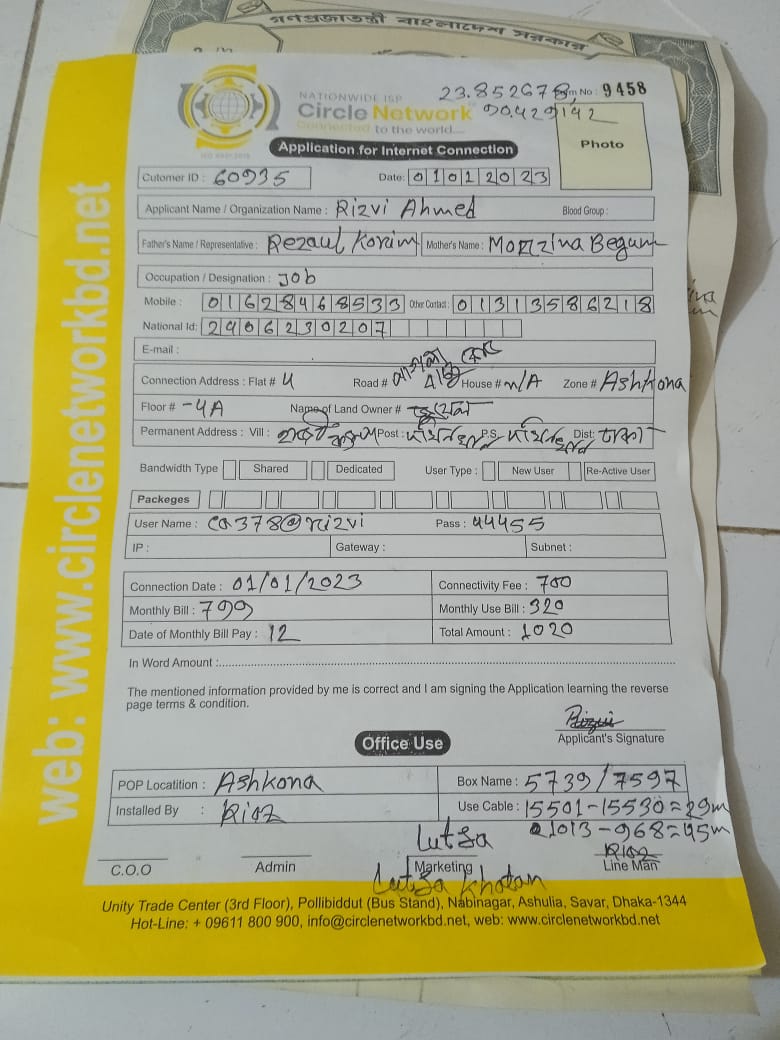 গণপ্রজাতন্ত্রী বাংলাদেশ সরকার
NATIONWIDE ISP
Circle Network
Connected to the world....
ISO 9001:2015
23.852678, Form No : 9458
90.429142
Application for Internet Connection
Photo
Cutomer ID : 60935 Date: 01012023
Applicant Name / Organization Name : Rizvi Ahmed Blood Group :
Father's Name / Representative : Rezaul Korim Mother's Name : Begum
Occupation / Designation : Job
Mobile : 01628468533 Other Contact : 01313586218
National Id: 2406230207
E-mail :
Connection Address : Flat # 4 Road # House # N/A Zone # Ashkona
Floor # -4A Name of Land Owner #
Permanent Address : Vill : Post : P.S. Dist: ঢাকা
Bandwidth Type Shared Dedicated User Type : New User Re-Active User
Packeges
User Name : ca378@rizvi Pass : 44455
IP : Gateway : Subnet :
Connection Date : 01/01/2023 Connectivity Fee : 700
Monthly Bill : 799 Monthly Use Bill : 320
Date of Monthly Bill Pay : 12 Total Amount : 1020
In Word Amount :
The mentioned information provided by me is correct and I am signing the Application learning the reverse
page terms & condition.
Rizvi
Applicant's Signature
Office Use
POP Locatition : Ashkona Box Name : 5739/7597
Installed By : Use Cable : 15501-15530=29m
1013-968=45m
C.O.O Admin Marketing Line Man
Unity Trade Center (3rd Floor), Pollibiddut (Bus Stand), Nabinagar, Ashulia, Savar, Dhaka-1344
Hot-Line: + 09611 800 900, info@circlenetworkbd.net, web: www.circlenetworkbd.net
web: www.circlenetworkbd.net